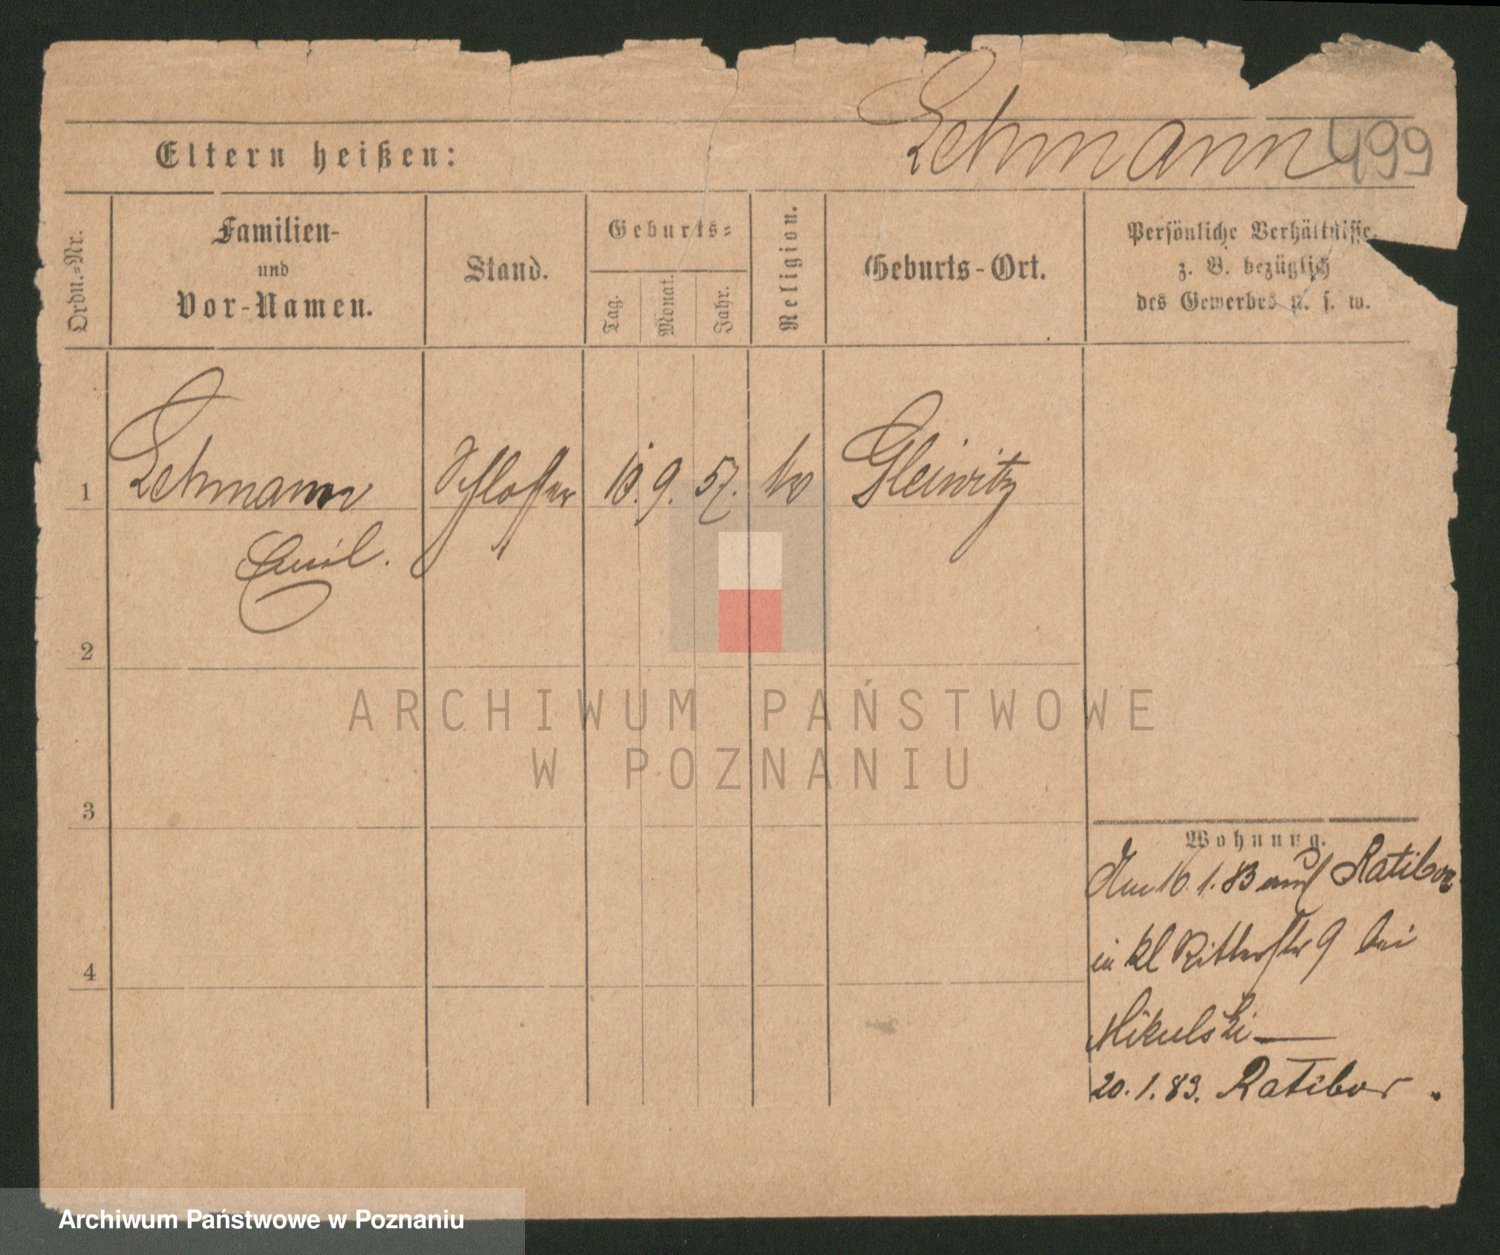 Lehmann 499
Eltern heißen:
Ordn.-Nr.
Familien-
und
Vor-Namen.
Stand.
Geburts-
Tag.
Monat.
Jahr.
Religion.
Geburts-Ort.
Persönliche Verhältnisse,
z. B. bezüglich
des Gewerbes u. s. w.
1 Lehmann Schlosser 10. 9. 57. Gleiwitz
Emil.
2
3
4
Wohnung.
Am 16.1.83 auf Ratibor
in kl Ritterstr 9 bei
Mikulski
20.1.83. Ratibor.
ARCHIWUM PAŃSTWOWE
W POZNANIU
Archiwum Państwowe w Poznaniu